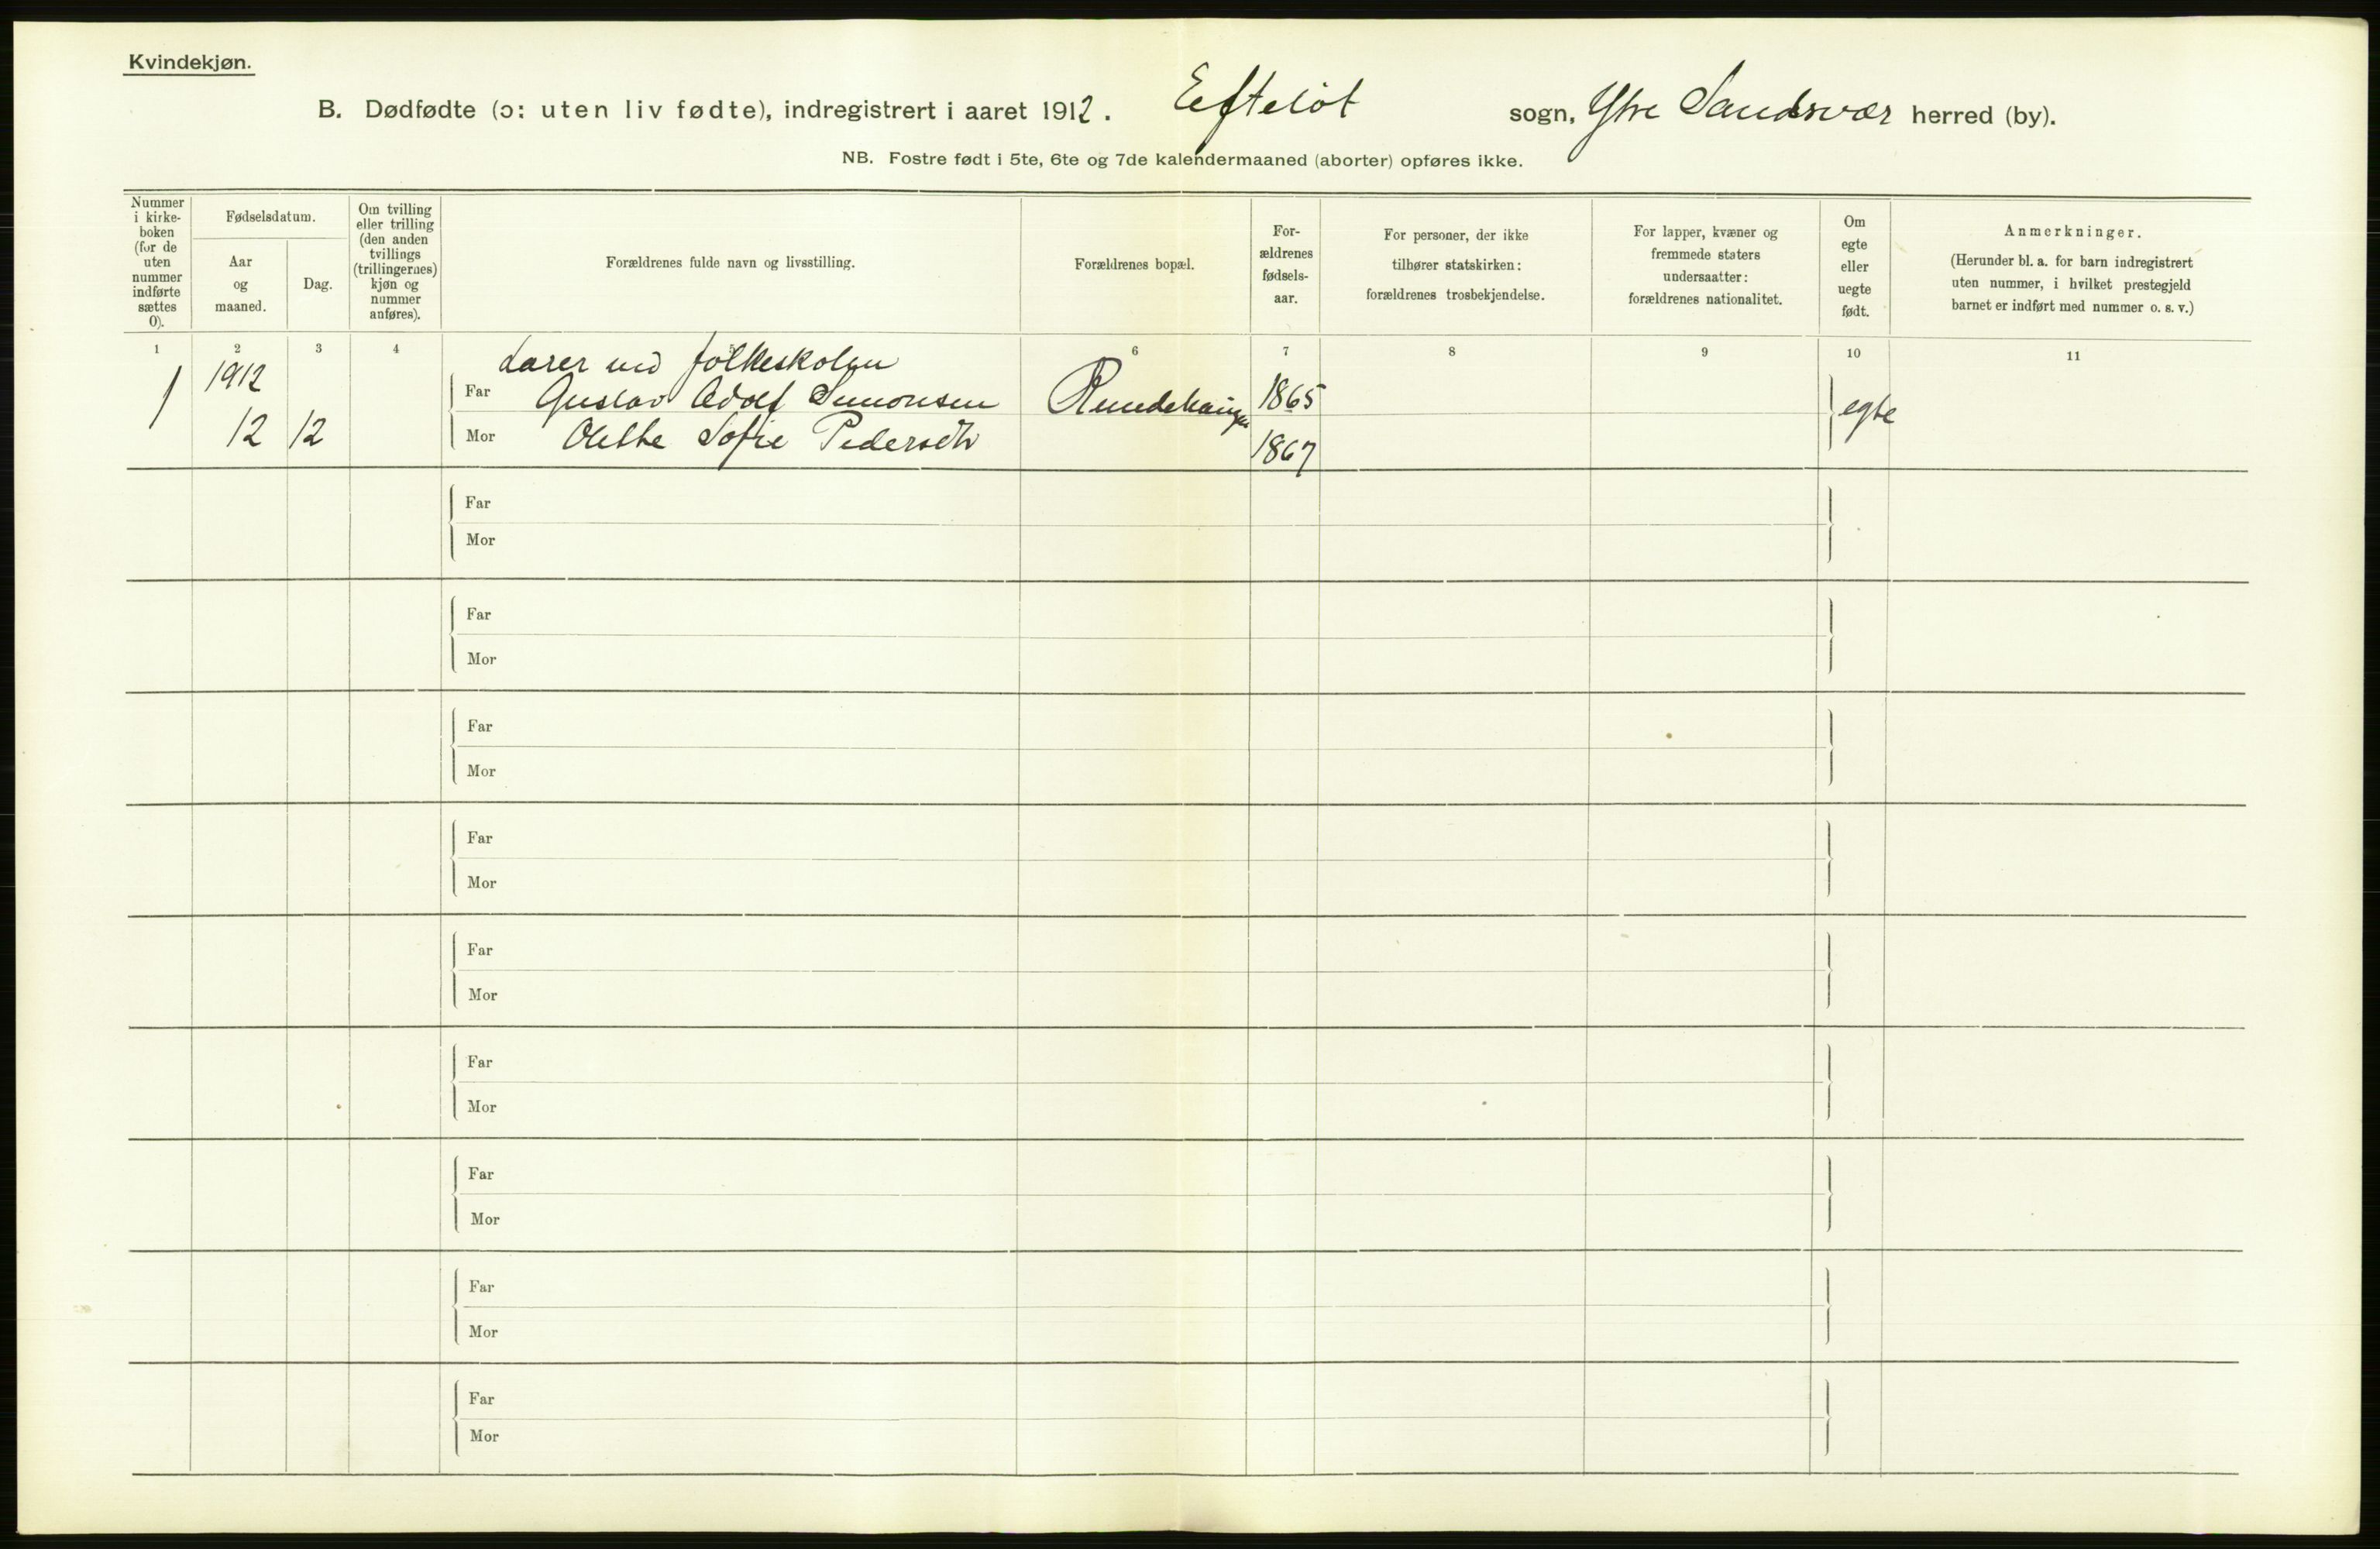 Kvindekjøn.
B. Dødfødte (ɔ: uten liv fødte), indregistrert i aaret 1912. Efteløt sogn, Ytre Sandsvær herred (by).
NB. Fostre født i 5te, 6te og 7de kalendermaaned (aborter) opføres ikke.
Nummer
i kirke-
boken
(for de
uten
nummer
indførte
sættes
0).
Fødselsdatum.
Aar
og
maaned.
Dag.
Om tvilling
eller trilling
(den anden
tvillings
(trillingernes)
kjøn og
nummer
anføres).
Forældrenes fulde navn og livsstilling.
Forældrenes bopæl.
For-
ældrenes
fødsels-
aar.
For personer, der ikke
tilhører statskirken:
forældrenes trosbekjendelse.
For lapper, kvæner og
fremmede staters
undersaatter:
forældrenes nationalitet.
Om
egte
eller
uegte
født.
Anmerkninger.
(Herunder bl. a. for barn indregistrert
uten nummer, i hvilket prestegjeld
barnet er indført med nummer o. s. v.)
1 2 3 4 5 6 7 8 9 10 11
Lærer ved folkeskolen
1 1912 Far Gustav Adolf Simonsen 1865 egte
12 12 Mor Olette Sofie Pedersen 1867
Far
Mor
Far
Mor
Far
Mor
Far
Mor
Far
Mor
Far
Mor
Far
Mor
Far
Mor
Far
Mor